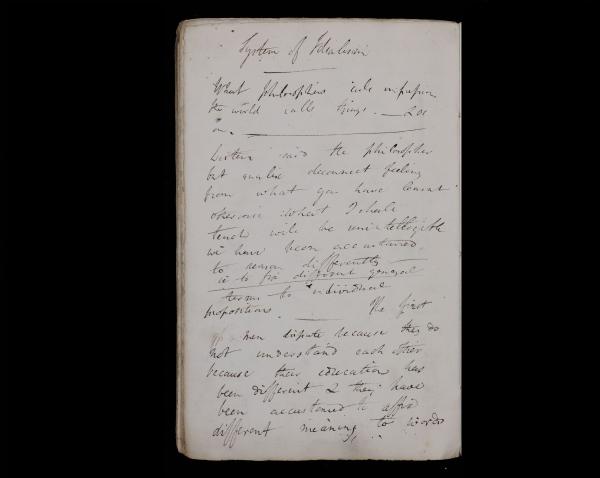 System of Idealism
What Philosophers call impression
the world calls things. — 201
or
Listen said the philosopher
but unless disconnect feeling
from what you have learnt
otherwise what I shall
teach will be unintelligible
we have been accustomed
to reason differently
is to fix different general
terms to individual
propositions. The first
men dispute because they do
not understand each other
because their education has
been different & they have
been accustomed to affix
different meaning to words